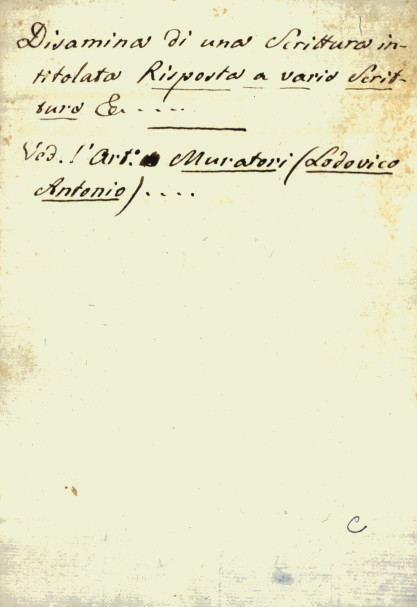 Disamina di una Scrittura in-
titolata Risposta a varie Scrit-
ture &. . . . .
Ved. l'Art.° Muratori (Lodovico
Antonio) . . . .
C